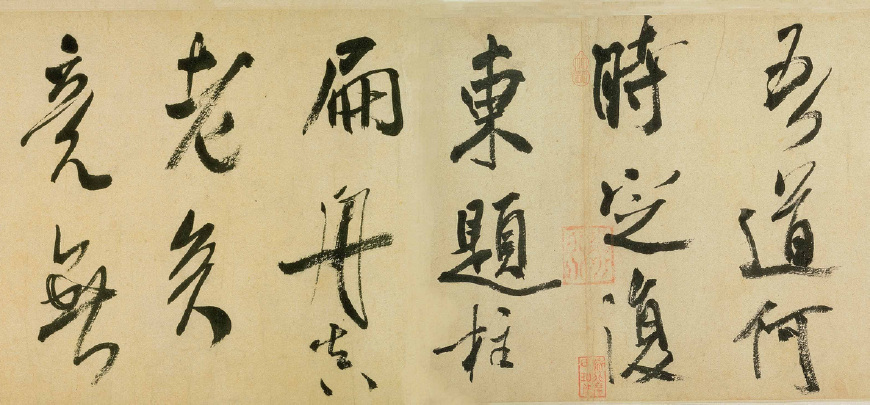 吾道何
時定復
東題柱
扁舟真
老矣
竟無